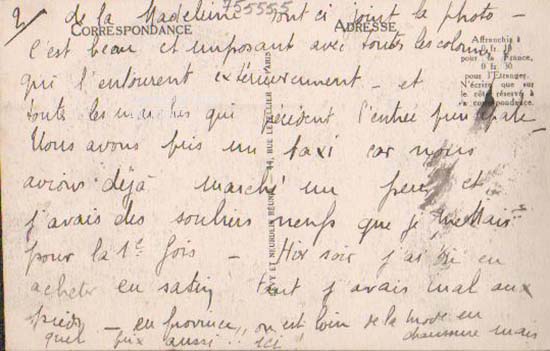 2/
755555
de la Madeleine dont ci joint la photo –
CORRESPONDANCE
ADRESSE
c'est beau et imposant avec toutes les colonnes
Affranchir à
0 fr
pour la France,
0 fr. 30
pour l'Etranger.
N'écrire que sur
le côté réservé à
la correspondance.
qui l'entourent extérieurement – et
toutes les marches qui précèdent l'entrée principale
Nous avons pris un taxi car nous
avions déjà marché un peu et
j'avais des souliers neufs que je mettais
pour la 1e fois – Hier soir j'ai été en
acheter en satin tant j'avais mal aux
pieds – en province, on est loin de la mode en
chaussure mais
quel prix aussi !! ici !
NEURDEIN RÉUNIS 44, RUE LETELLIER PARIS